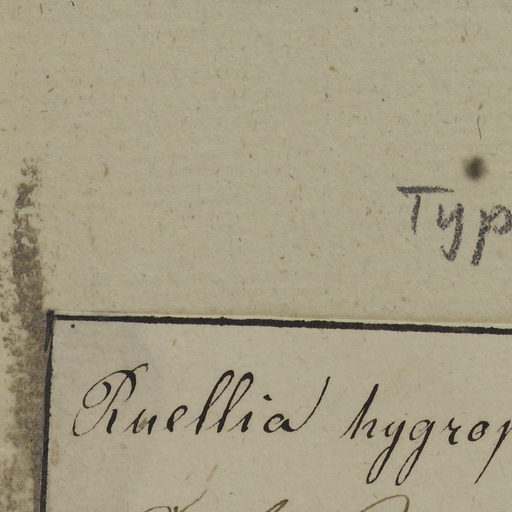 Typ
Ruellia hygrop